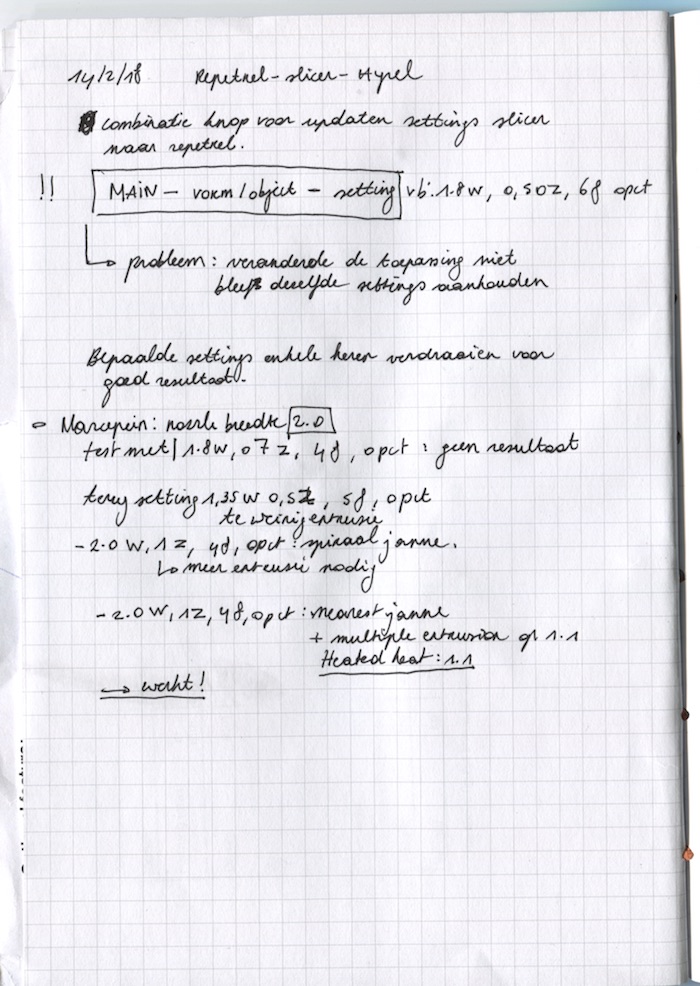 14/2/18 Repetrel-slicer-Hyrel
combinatie knop voor updaten settings slicer
naar repetrel.
!! MAIN - vorm/object - setting vb: 1.8w, 0,50z, 6f opct
probleem: veranderde de toepassing niet
bleef dezelfde settings aanhouden
Bepaalde settings enkele keren verdraaien voor
goed resultaat.
Marsepein: nozzle breedte 2.0
test met 1.8w, 07z, 4f, opct: geen resultaat
terug setting 1,35w 0,5z, 5f, opct
te weinig extrusie
-2.0w, 1z, 4f, opct: spiraal janne.
meer extrusie nodig
-2.0w, 1z, 4f, opct: nearest janne
+ multiple extrusion op 1.1
Heated heat: 1.1
→ werkt!